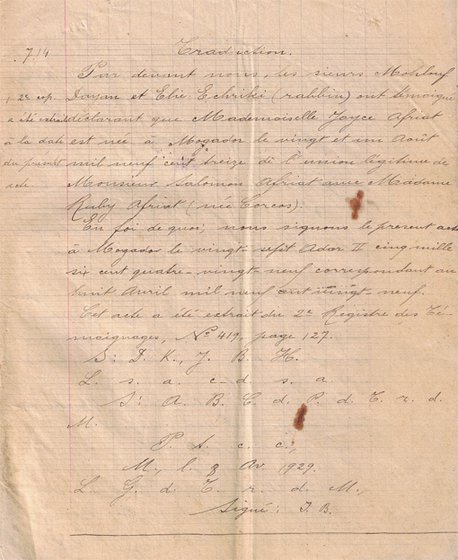 714
Traduction.
Par devant nous, les sieurs Mohlouf
Dayan et Elie Echriki (rabbin) ont témoigné
déclarant que Mademoiselle Joyce Afriat
est née à Mogador le vingt et un Août
mil neuf cent treize de l'union légitime de
Monsieur Salomon Afriat avec Madame
Ruby Afriat (née Corcos).
En foi de quoi, nous signons le present acte
à Mogador le vingt-sept Adar II cinq mille
six cent quatre-vingt-neuf correspondant au
huit Avril mil neuf cent vingt-neuf.
Cet acte a été extrait du 2e Registre des Té-
moignages, No 419, page 127.
S: D. K., J. B. H.
L. s a c d s a
S: A. B. C. d. P. d. T. r. d.
M.
P. t. c. c.,
M., l. 8 Av. 1929.
L. G. d. T. r. d. M.,
Signé: J. B.
1 2e cop.
a été extrait
à la date
du présent
acte